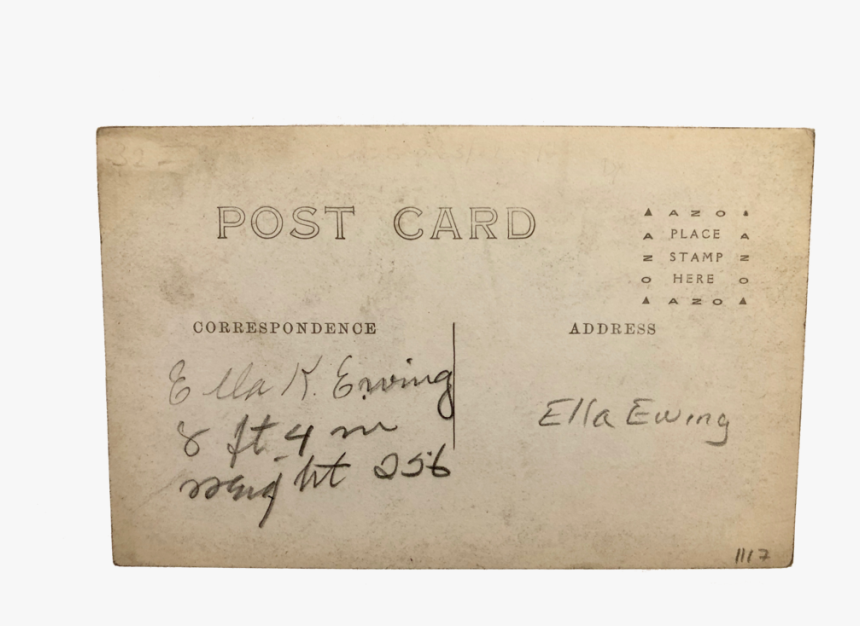 32-
POST CARD
▲ A Z O ▲
A PLACE A
Z STAMP Z
O HERE O
▲ A Z O ▲
CORRESPONDENCE
Ella K. Ewing
8 ft 4 in
weight 256
ADDRESS
Ella Ewing
1117